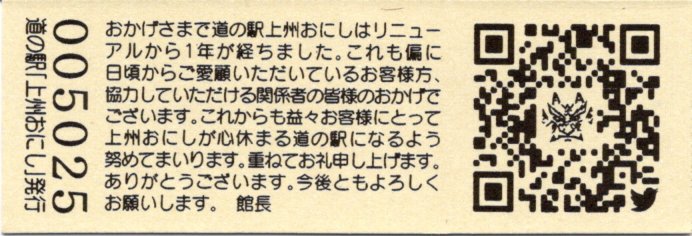 005025
道の駅「上州おにし」発行
おかげさまで道の駅上州おにしはリニュー
アルから1年が経ちました。これも偏に
日頃からご愛顧いただいているお客様方、
協力していただける関係者の皆様のおかげで
ございます。これからも益々お客様にとって
上州おにしが心休まる道の駅になるよう
努めてまいります。重ねてお礼申し上げます。
ありがとうございます。今後ともよろしく
お願いします。 館長